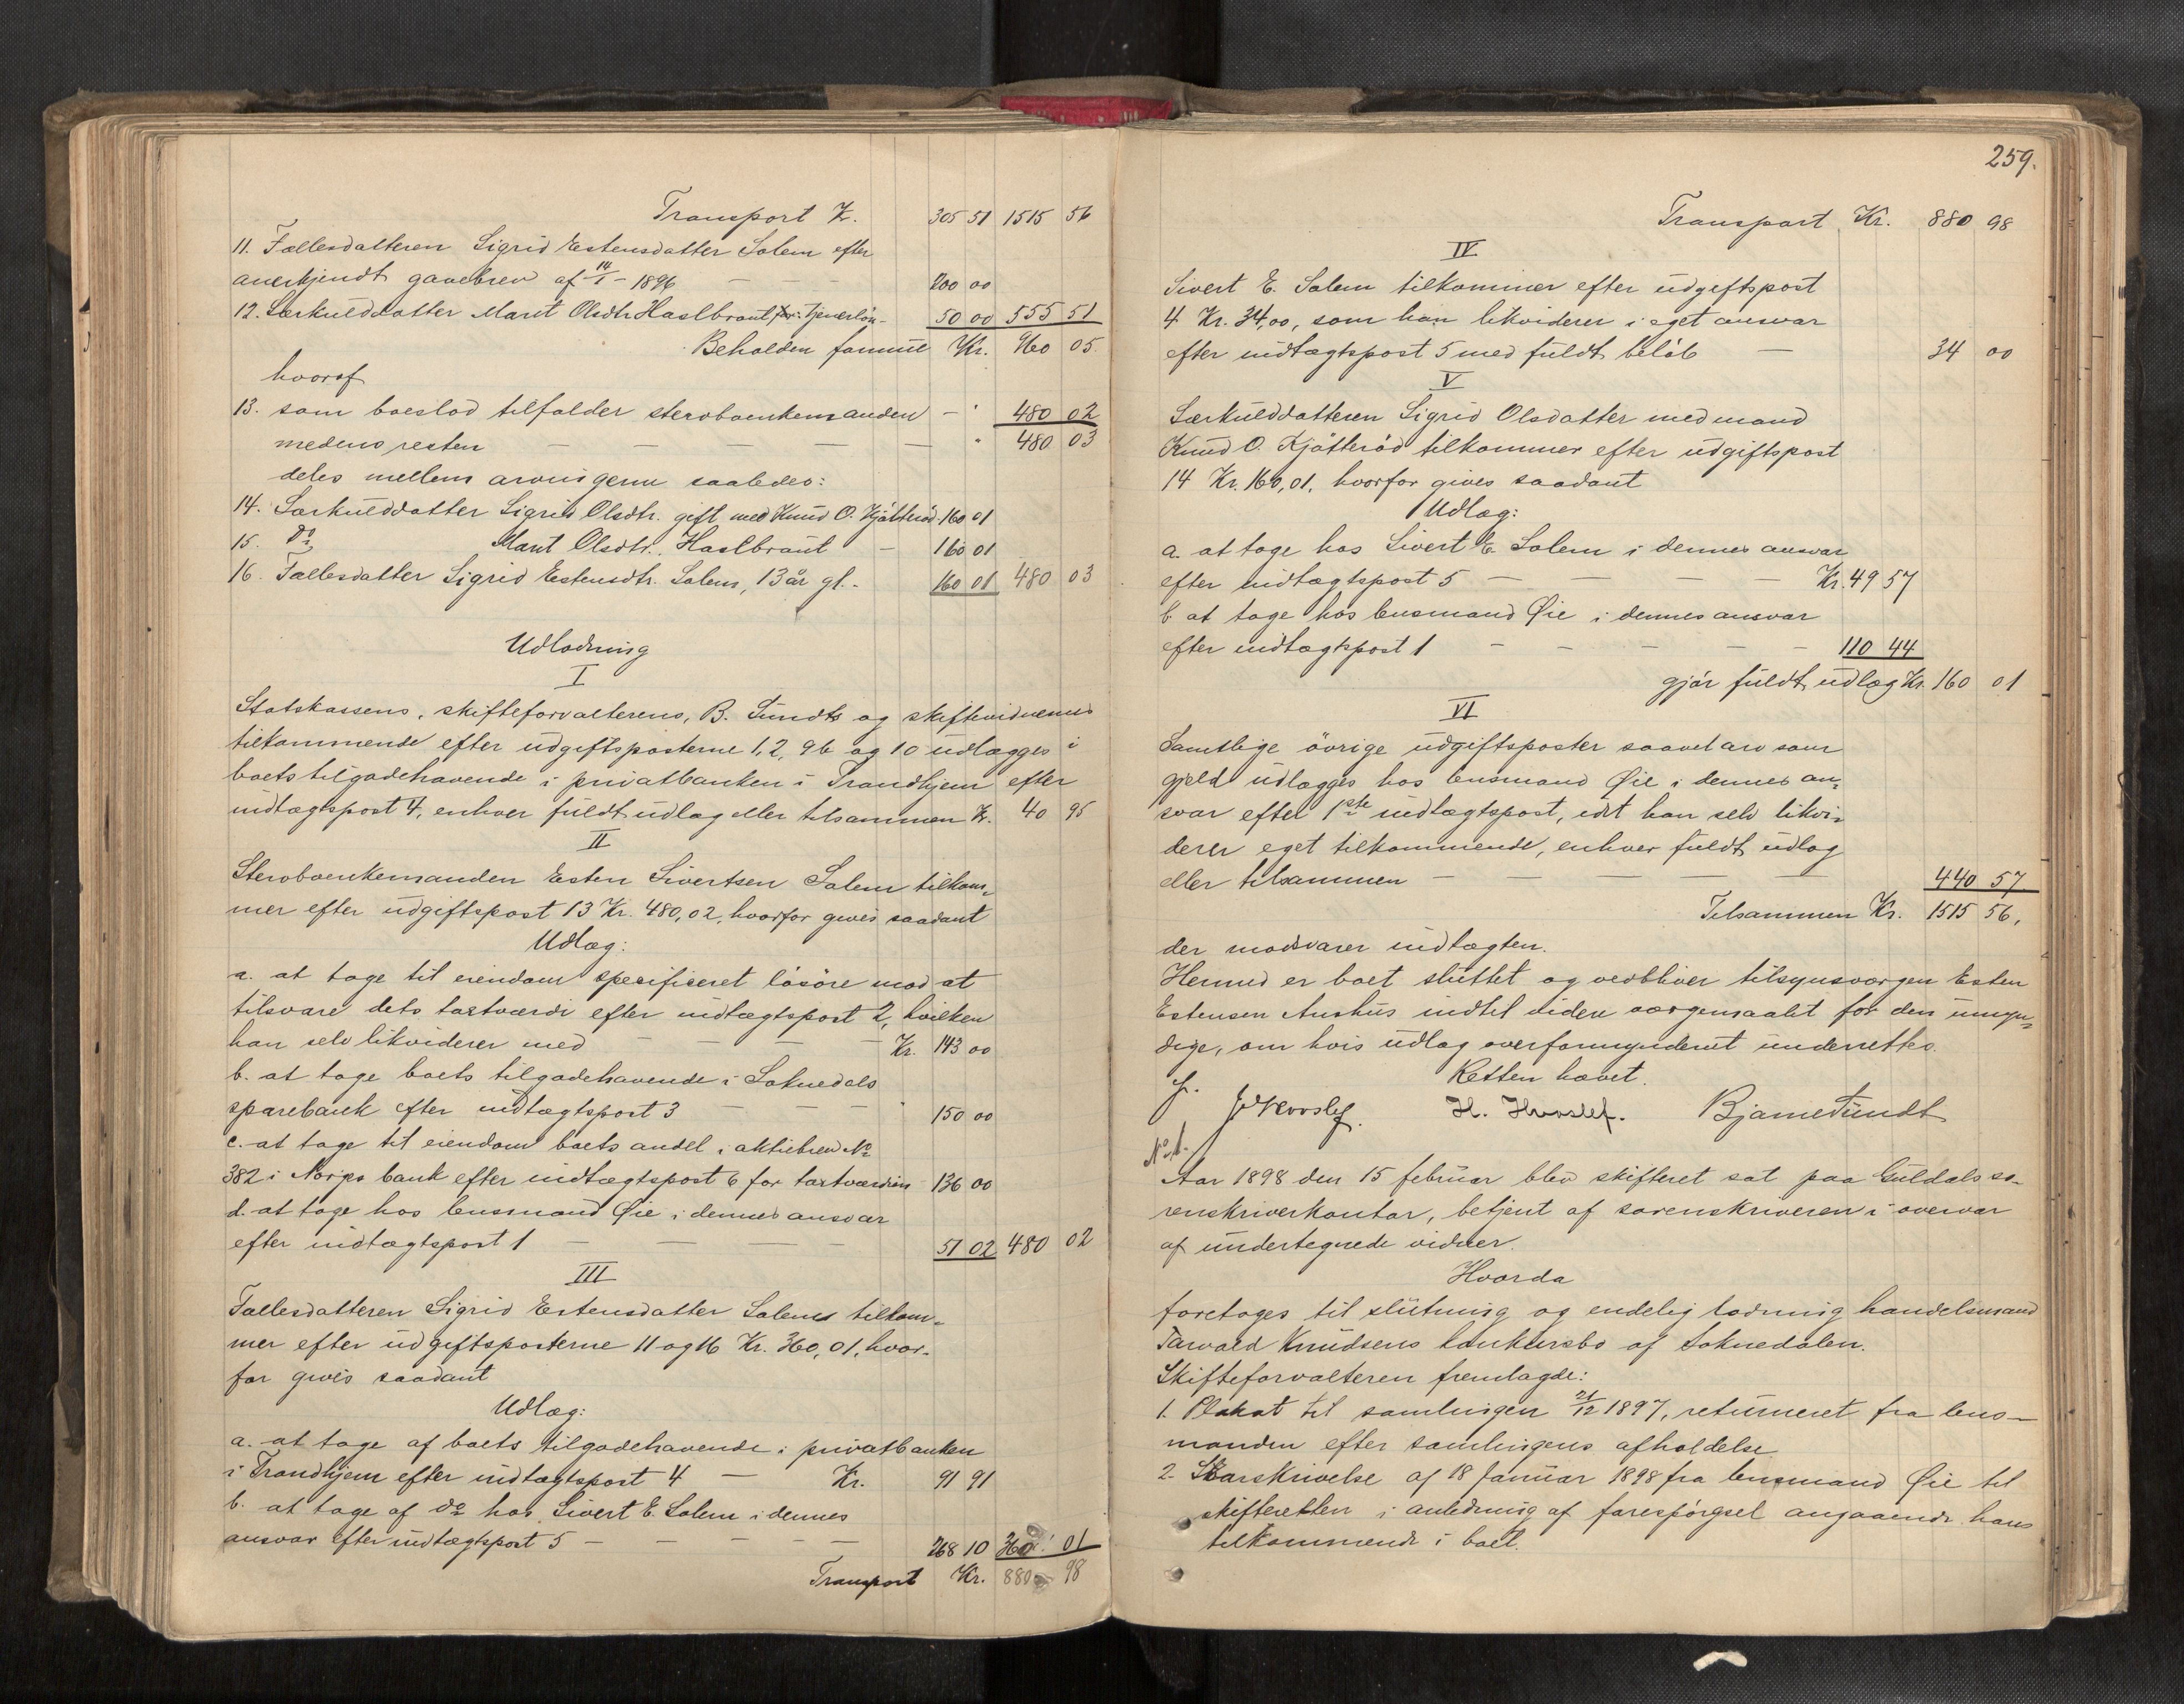 Transport Kr. 305 51 1515 56
11. Fællesdatteren Sigrid Estensdatter Solem efter
anerkjendt gavebrev af 14/1 - 1896 — — — 200 00
12. Særkulddatter Marit Olsdtr Haslbraut, for tjenerløn - 50 00 555 51
Beholden formue Kr. 960 05
hvoraf
13. som boeslod tilfalder sterboenkemanden — " 480 02
medens resten — — — — — " 480 03
deles mellem arvingerne saaledes:
14. Særkulddatter Sigrid Olsdtr. gift med Knud O. Kjøtterød 160 01
15. do Marit Olsdtr. Haslbraut — 160 01
16. Fællesdatter Sigrid Estensdtr. Solem, 13 år gl. - 160 01 480 03
Udlodning
I
Statskassens, skifteforvalterens, B. Sundts og skiftevidnernes
tilkommende efter udgiftsposterne 1, 2, 9b og 10 udlægges i
boets tilgodehavende i privatbanken i Trondhjem efter
indtægtspost 4, enhver fuldt udlæg eller tilsammen Kr. 40 95
II
Sterboenkemanden Esten Sivertsen Solem tilkom-
mer efter udgiftspost 13 Kr. 480,02, hvorfor gives saadant
Udlæg:
a. at tage til eiendom specificeret løsøre mod at
tilsvare dets taxtværdi efter indtægtspost 2, hvilken
han selv likviderer med — — — — Kr. 143 00
b. at tage boets tilgodehavende i Soknedals
sparebank efter indtægtspost 3 — — — " 150 00
c. at tage til eiendom boets andel i aktiebrev No
382 i Norges bank efter indtægtspost 6 for taxtværdien 136 00
d. at tage hos lensmand Øie i dennes ansvar
efter indtægtspost 1 — — — 51 02 480 02
III
Fællesdatteren Sigrid Estensdatter Solem tilkom-
mer efter udgiftsposterne 11 og 16 Kr. 360,01, hvor-
for gives saadant
Udlæg:
a. at tage af boets tilgodehavende i privatbanken
i Trondhjem efter indtægtspost 4 — Kr. 91 91
b. at tage af do hos Sivert E. Solem i dennes
ansvar efter indtægtspost 5 — — — — — 268 10 360 01
Transport Kr. 880 98
259.
Transport Kr. 880 98
IV
Sivert E. Solem tilkommer efter udgiftspost
4 Kr. 34,00, som han likviderer i eget ansvar
efter indtægtspost 5 med fuldt beløb — 34 00
V
Særkulddatteren Sigrid Olsdatter med mand
Knud O. Kjøtterød tilkommer efter udgiftspost
14 Kr. 160,01, hvorfor gives saadant
Udlæg:
a. at tage hos Sivert E. Solem i dennes ansvar
efter indtægtspost 5 — — — — Kr. 49 57
b. at tage hos lensmand Øie i dennes ansvar
efter indtægtspost 1 — — — — — 110 44
gjør fuldt udlæg Kr. 160 01
VI
Samtlige øvrige udgiftsposter saavel arv som
gjeld udlægges hos lensmand Øie i dennes an-
svar efter 1ste indtægtspost, idet han selv likvi-
derer eget tilkommende, enhver fuldt udlæg
eller tilsammen — — — — 440 57
Tilsammen Kr. 1515 56,
der modsvarer indtægten.
Hermed er boet sluttet og vedbliver tilsynsværgen Esten
Estensen Aushus indtil videre værgemaalet for den umyn-
dige, om hvis udlæg overformynderiet underrettes.
Retten hævet.
H. Hvoslef. Bjarne Sundt
No 1.
Aar 1898 den 15 februar blev skifteret sat paa Guldals so-
renskriverkontor, betjent af sorenskriveren i overvær
af undertegnede vidner.
Hvorda
foretoges til slutning og endelig lodning handelsmand
Torvald Knudsens konkursbo af Soknedalen.
Skifteforvalteren fremlagde:
1. Plakat til samlingen 21/12 1897, returneret fra lens-
manden efter samlingens afholdelse
2. Svarskrivelse af 18 Januar 1898 fra lensmand Øie til
skifteretten i anledning af forespørgsel angaaende hans
tilkommende i boet.